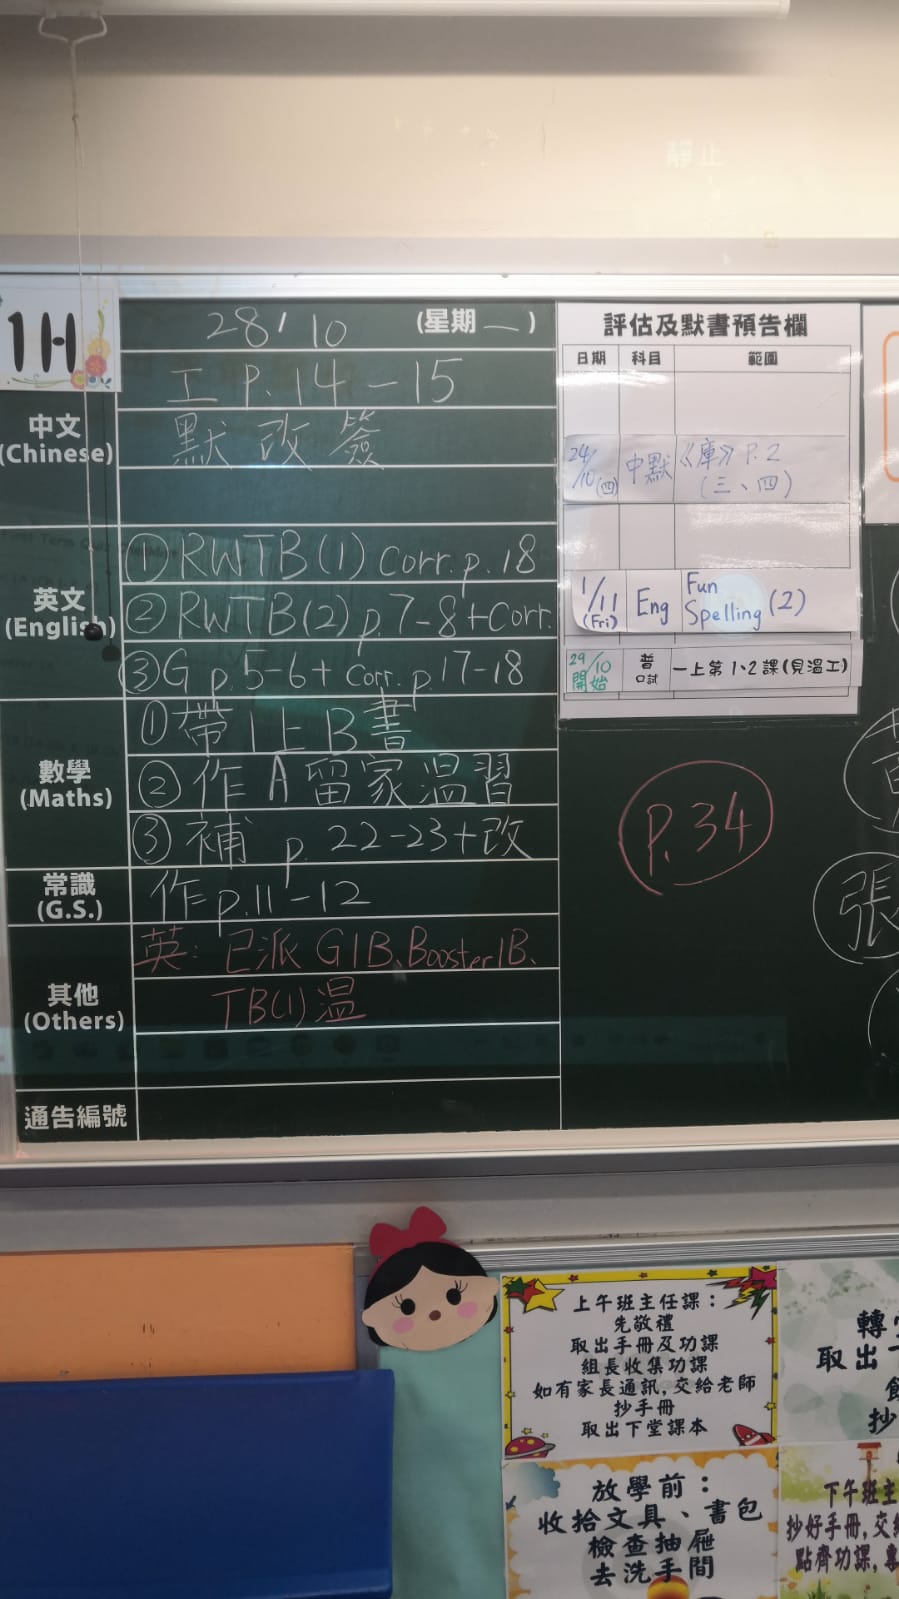 靜止
1H
28/10 (星期一)
中文
(Chinese)
工 P.14-15
默改簽
英文
(English)
①RWTB(1) Corr. p.18
②RWTB(2) p.7-8+Corr.
③G p.5-6+ Corr. p.17-18
數學
(Maths)
①帶1上B書
②作A留家温習
③補 p.22-23+改
常識
(G.S.)
作p.11-12
其他
(Others)
英:已派G1B、Booster1B、
TB(1)温
通告編號
評估及默書預告欄
日期 科目 範圍
24/10(四) 中默 《庫》P.2
(三、四)
1/11 (Fri) Eng Fun Spelling (2)
29/10 開始 普 口試 一上第1、2課(見溫工)
P.34
張
上午班主任課:
先敬禮
取出手冊及功課
組長收集功課
如有家長通訊,交給老師
抄手冊
取出下堂課本
放學前:
收拾文具、書包
檢查抽屜
去洗手間
轉
取出
抄
下午班主
抄好手冊,交
點齊功課,